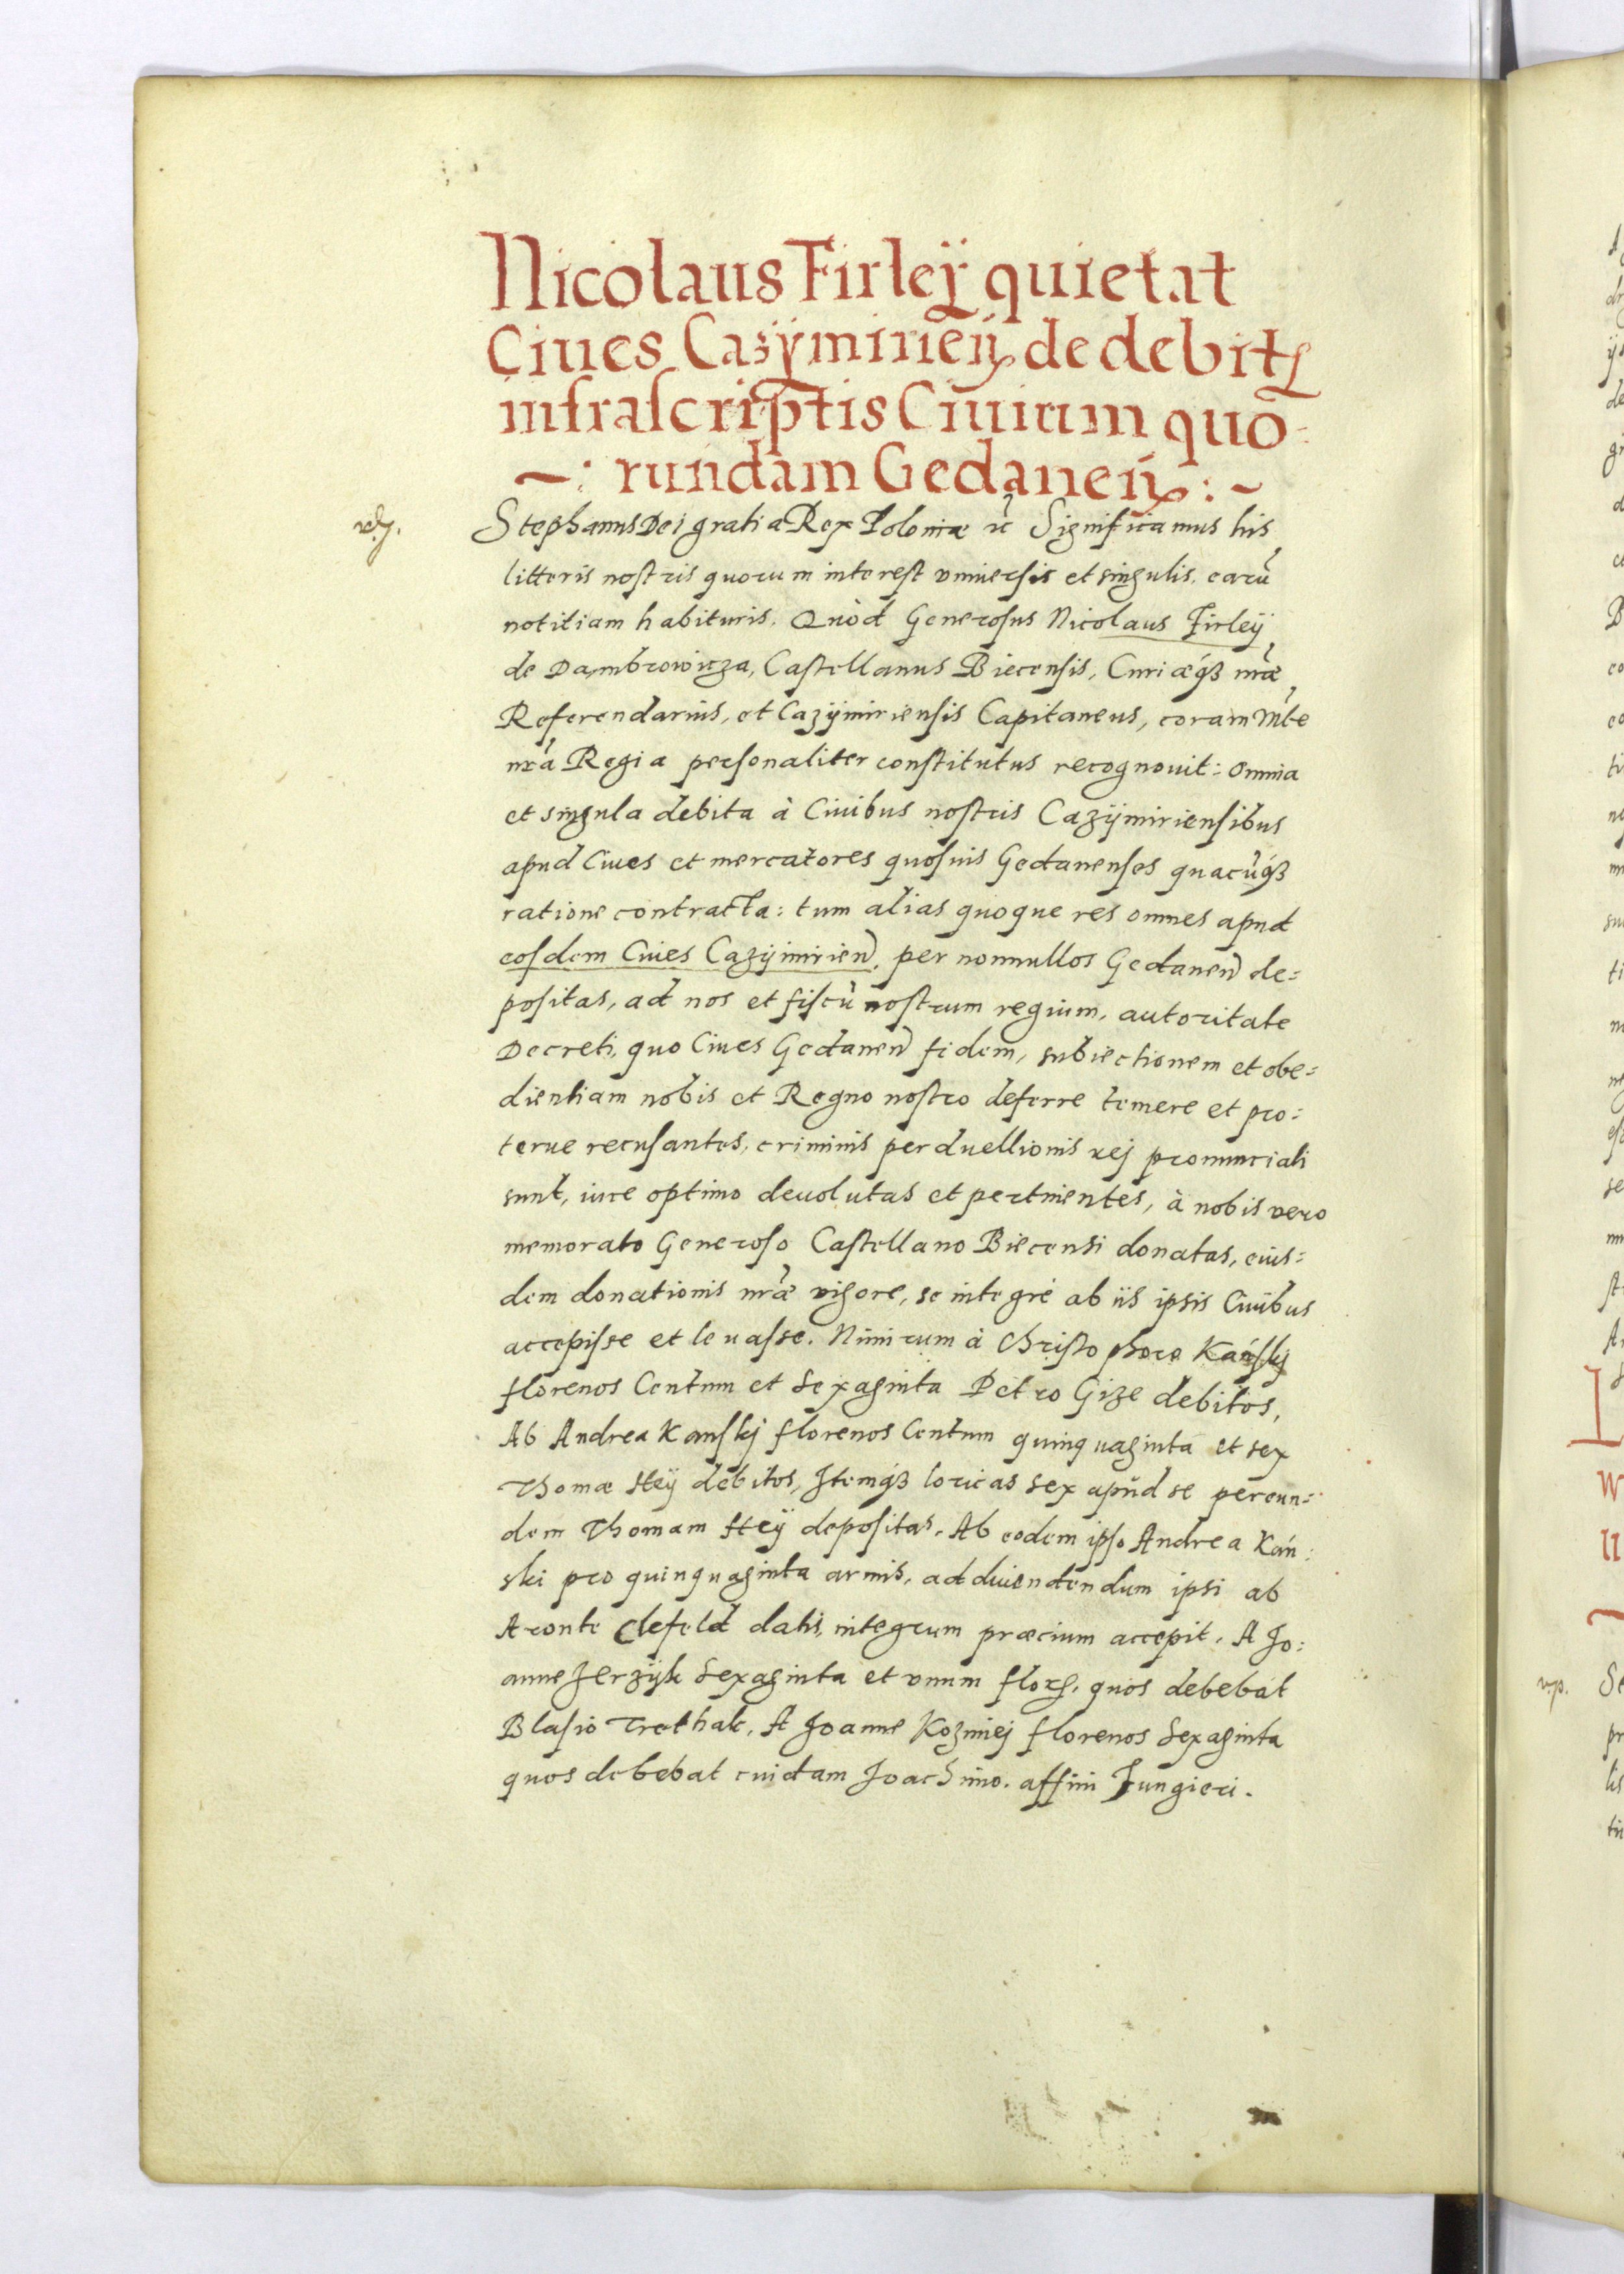 Nicolaus Firleÿ quietat
Ciues Cazÿmirien̄ de debitꝭ
infrascriptis Ciuium quo=
~: rundam Gedanen̄ :~
Stephanus Dei gratia Rex Poloniæ ꝛc̃ Significamus his
litteris nostris quorum interest vniuersis et singulis, earũ
notitiam habituris. Quòd Generosus Nicolaus Firleÿ
de Dambrowicza, Castellanus Biecensis, Curiæq́ꝫ nr̃æ
Referendarius, et Cazÿmiriensis Capitaneus, coram Mt̃e
nr̃a Regia personaliter constitutus recognouit: omnia
et singula debita à Ciuibus nostris Cazÿmiriensibus
apud Ciues et mercatores quosuis Gedanenses quacũq́ꝫ
ratione contracta: tum alias quoque res omnes apud
eosdem Ciues Cazÿmirien̄, per nonnullos Gedanen̄ de=
positas, ad nos et fiscũ nostrum regium, autoritate
Decreti, quo Ciues Gedanen̄ fidem, subiectionem et obe=
dientiam nobis et Regno nostro deferre temere et pro=
terue recusantes, criminis perduellionis rej pronunciati
sunt, iure optimo deuolutas et pertinentes, à nobis vero
memorato Generoso Castellano Biecensi donatas, eius=
dem donationis nr̃æ vigore, se integrè ab iis ipsis Ciuibus
accepisse et leuasse. Nimirum à Christophoro Kánskj
florenos Centum et Sexaginta Petro Gize debitos,
Ab Andrea Kanskj florenos Centum quinquaginta et sex
Thomæ Steÿ debitos, Itemq́ꝫ loricas sex apũd se per eun=
dem Thomam Steÿ depositas. Ab eodem ipso Andrea Kán=
ski pro quinquaginta armis, ad diuendendum ipsi ab
Aronte Clefeld datis, integrum præcium accepit. A Jo=
anne Jerzÿk Sexaginta et vnum florꝭ. quos debebat
Blasio Trethak. A Joanne Kozmiej florenos Sexaginta
quos debebat cuidam Joachimo. affini Jungieri.